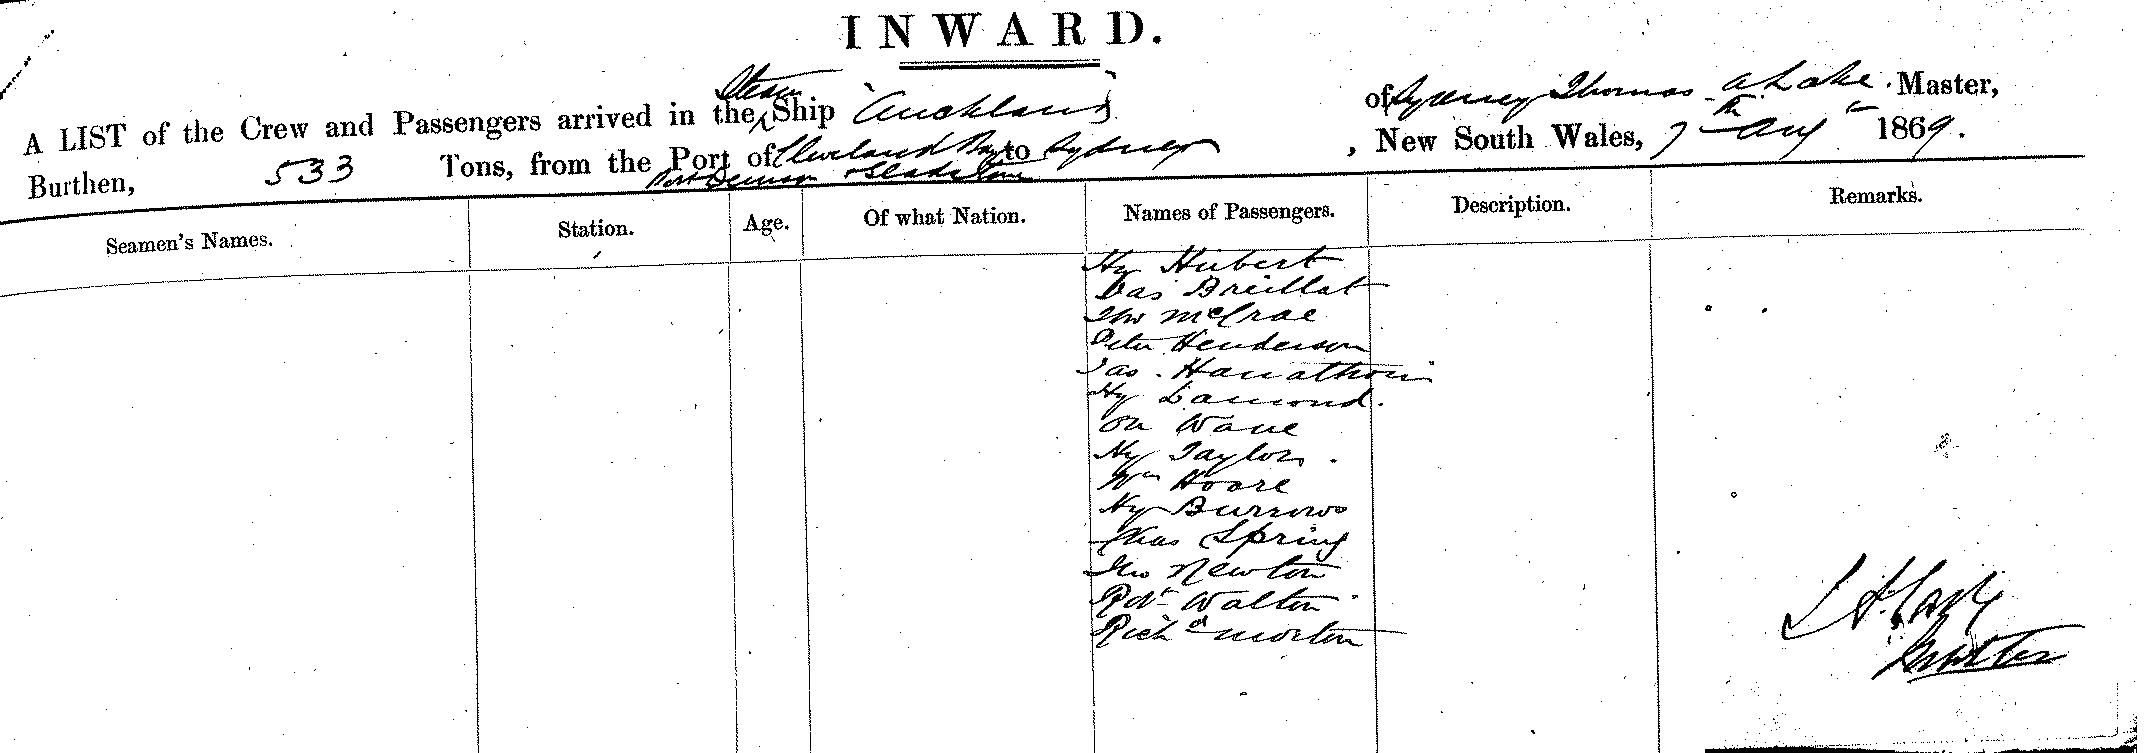 INWARD.
A LIST of the Crew and Passengers arrived in the Steam Ship "Auckland" of Sydney Thomas A Lake. Master,
Burthen, 533 Tons, from the Port of Cleveland Bay to Sydney, New South Wales, 7th Aug 1869.
Port Denison & Gladstone
Seamen's Names. Station. Age. Of what Nation. Names of Passengers. Description. Remarks.
Hy Hubert
Jas Breillat
Thos McCrae
Peter Henderson
Jas. Hanathon
Hy Lamond.
Wane
Hy Taylor.
Wm Hoare
Hy Burrows
Chas Spring
Newton
Robt Walton
Richd Morton
Master